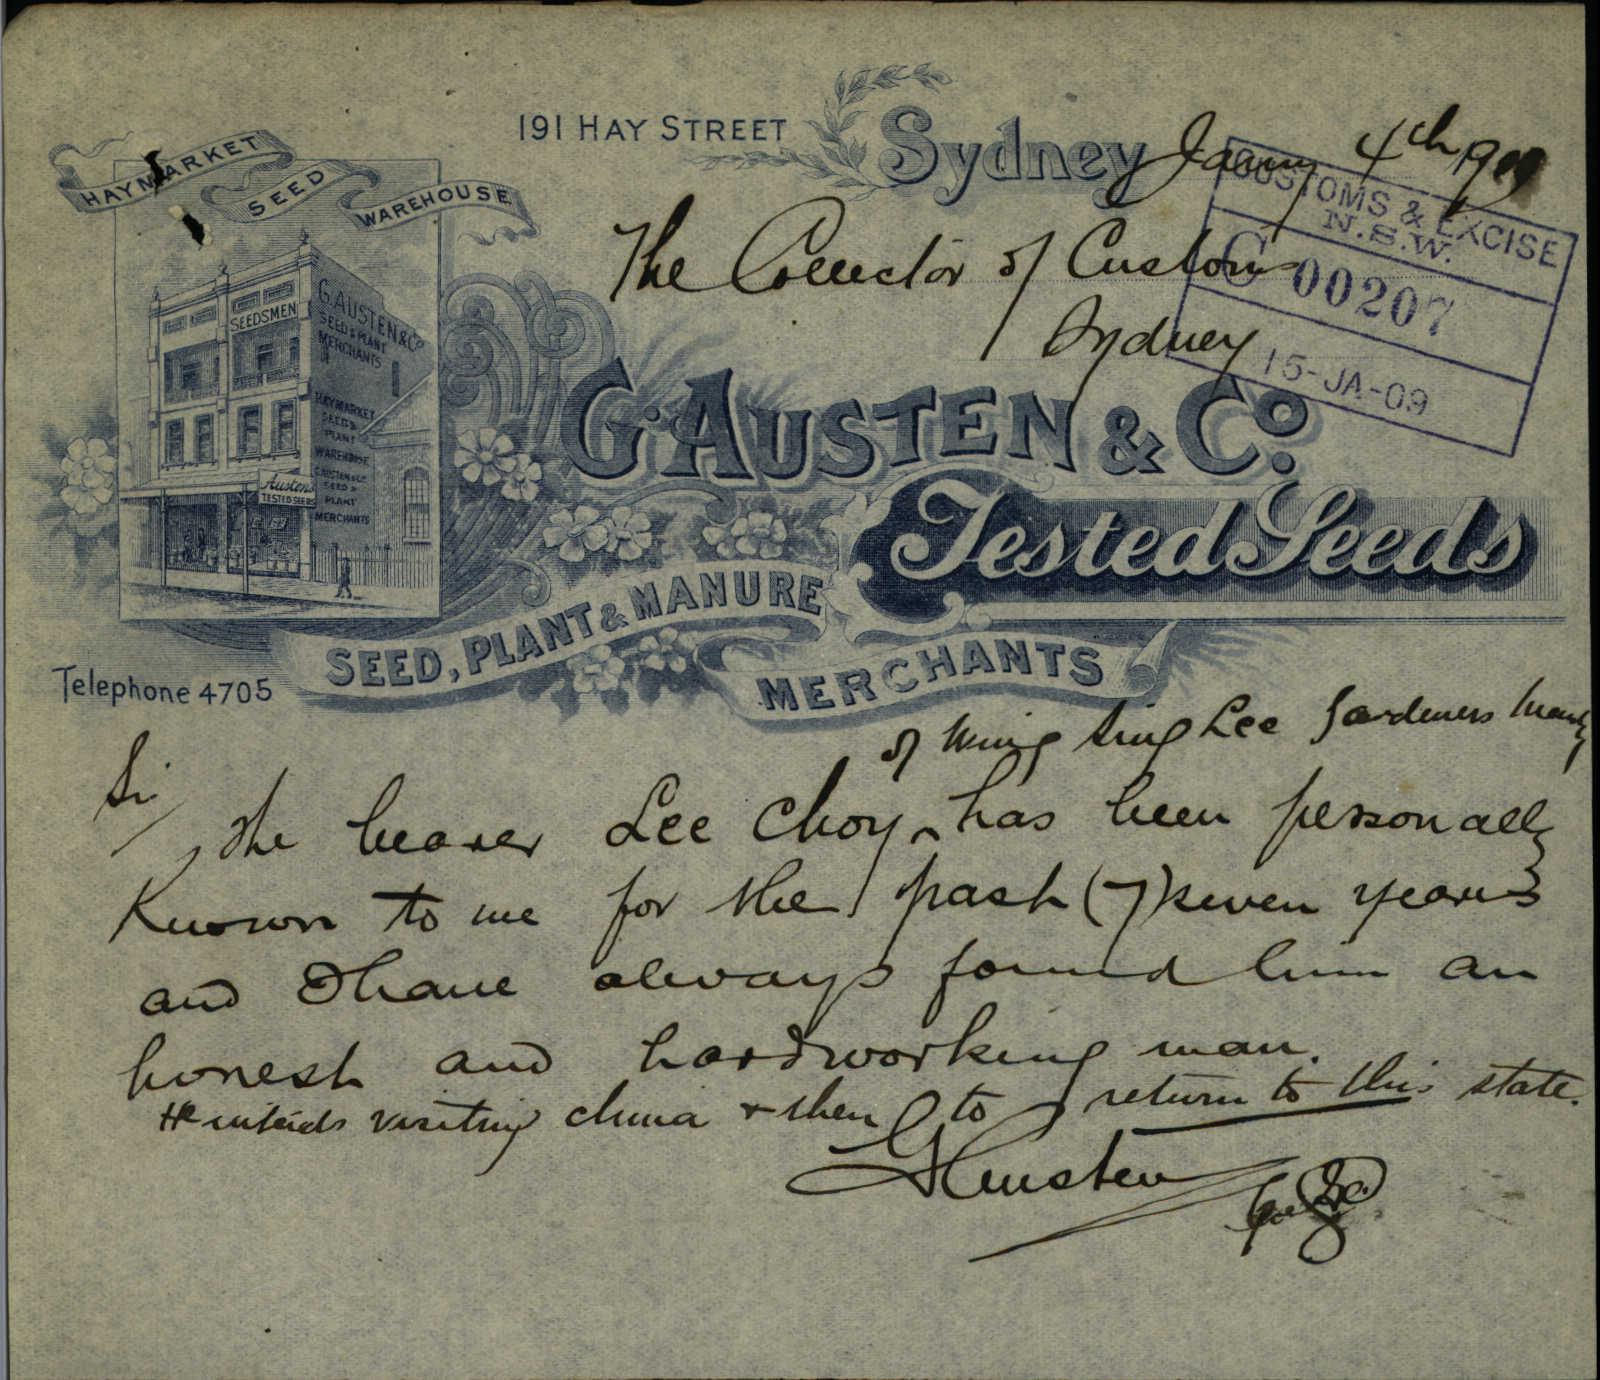 191 HAY STREET
Sydney Jany 4th 1909
HAYMARKET
SEED
WAREHOUSE
CUSTOMS & EXCISE
N.S.W.
C 00207
15-JA-09
The Collector of Customs
Sydney
SEEDSMEN
G. AUSTEN & Co
SEED & PLANT
MERCHANTS
HAYMARKET
SEED &
PLANT
WAREHOUSE
G. AUSTEN & Co
SEED &
PLANT
MERCHANTS
Austen's
TESTED SEEDS
G. AUSTEN & Co.
Tested Seeds
SEED, PLANT & MANURE
MERCHANTS
Telephone 4705
of Wing Sing Lee Gardeners Manly
Sir
The bearer Lee Choy ^ has been personally
Known to me for the past (7) seven years
and I have always found him an
honest and hardworking man.
He intends visiting China & then to return to this state.
G Austen